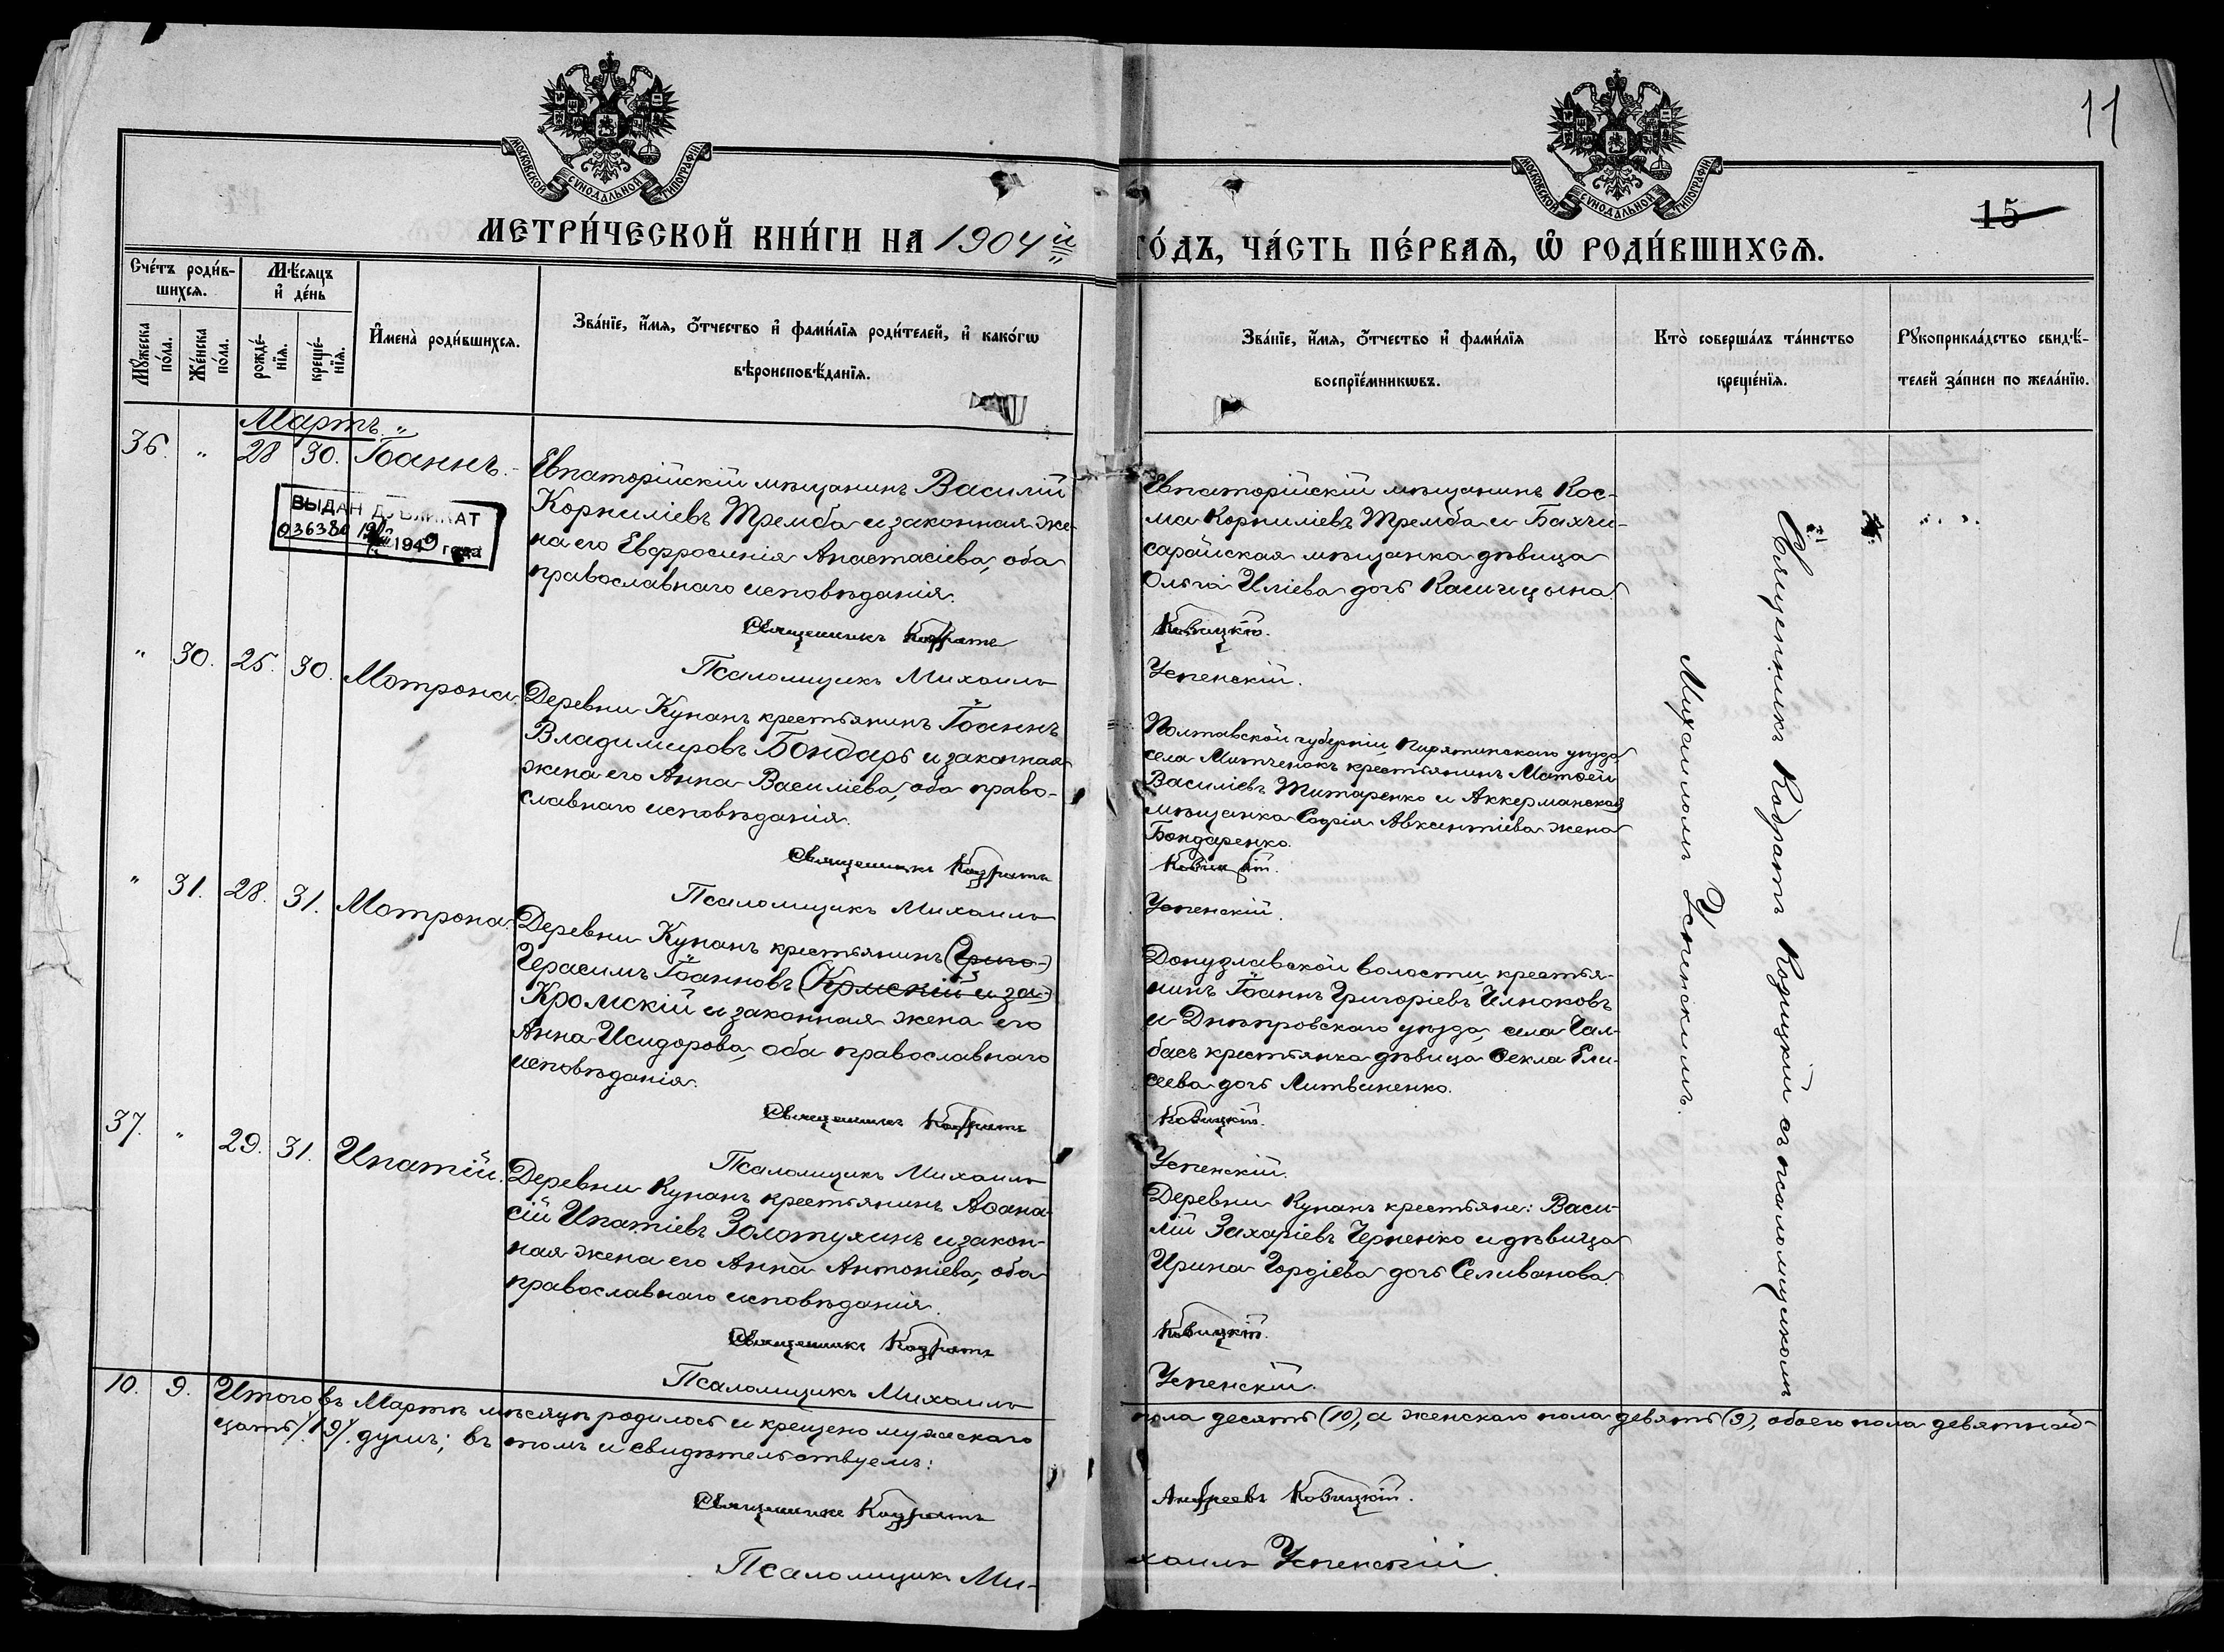 11
МОСКОВСКОЙ СѴНОДАЛЬНОЙ ТИПОГРАФІИ
МОСКОВСКОЙ СѴНОДАЛЬНОЙ ТИПОГРАФІИ
15
МЕТРИ́ЧЕСКОЙ КНИ́ГИ НА 1904 й
ГО́ДЪ, ЧА́СТЬ ПЕ́РВАѦ, Ѡ҆ РОДИ́ВШИХСѦ.
Сче́тъ роди́в-
шихсѧ.
Мꙋ́жеска по́ла.
Же́нска по́ла.
Мѣ́сѧцъ
и҆ де́нь
рожде́-
нїѧ.
креще́-
нїѧ.
И҆мена̀ роди́вшихсѧ.
Зва́нїе, и҆́мѧ, ѻ҆́тчество и҆ фами́лїѧ роди́телей, и҆ како́гѡ
вѣроисповѣ́данїѧ.
Зва́нїе, и҆́мѧ, ѻ҆́тчество и҆ фами́лїѧ
воспрїе́мникѡвъ.
Кто̀ соверша́лъ та́инство
креще́нїѧ.
Рꙋкоприкла́дство свидѣ́-
телей за́писи по жела́нїю.
Мартъ.
36. " 28 30. Іоаннъ.
ВЫДАН ДУБЛИКАТ
1949 года
Евпаторійскій мѣщанинъ Василій
Корниліевъ Тремба и законная же-
на его Евфросинія Анастасіева, оба
православнаго исповѣданія.
Священникъ Кодратъ
Псаломщикъ Михаилъ
Евпаторійскій мѣщанинъ Кос-
ма Корниліевъ Тремба и Бахчи-
сарайская мѣщанка дѣвица
Ольга Иліева дочь Касицына.
Ковицкій.
Успенскій.
Священникъ Кодратъ Ковицкій съ псаломщикомъ
Михаиломъ Успенскимъ.
" 30. 25. 30. Мотрона.
Деревни Кунанъ крестьянинъ Іоаннъ
Владимировъ Бондарь и законная
жена его Анна Василіева, оба право-
славнаго исповѣданія.
Священникъ Кодратъ
Псаломщикъ Михаилъ
Полтавской губерніи, Пирятинскаго уѣзда
села Митченокъ крестьянинъ Матѳей
Василіевъ Титаренко и Аккерманская
мѣщанка Софія Авксентіева жена
Бондаренко.
Ковицкій.
Успенскій.
" 31. 28. 31. Мотрона.
Деревни Кунанъ крестьянинъ (Григо-)
Герасимъ Іоанновъ (Крмскій и за-)
Кромскій и законная жена его
Анна Исидорова, оба православнаго
исповѣданія.
Священникъ Кодратъ
Псаломщикъ Михаилъ
Донузлавской волости, крестья-
нинъ Іоаннъ Григоріевъ Челноковъ
и Днѣпровскаго уѣзда, села Чал-
басъ крестьянка дѣвица Ѳекла Ели-
сеева дочь Литвиненко.
Ковицкій.
Успенскій.
37. " 29. 31. Ипатій.
Деревни Кунанъ крестьянинъ Аѳана-
сій Ипатіевъ Золотухинъ и закон-
ная жена его Анна Антоніева, оба
православнаго исповѣданія.
Священникъ Кодратъ
Псаломщикъ Михаилъ
Деревни Кунанъ крестьяне: Васи-
лій Захаріевъ Черненко и дѣвица
Ирина Гордіева дочь Селиванова.
Ковицкій.
Успенскій.
10. 9. Итого въ Мартѣ мѣсяцѣ родилось и крещено мужескаго
пола десять (10), а женскаго пола девять (9), обоего пола девятнад-
цать /19/ душъ; въ томъ и свидѣтельствуемъ:
Священникъ Кодратъ
Андреевъ Ковицкій.
Псаломщикъ Ми-
хаилъ Успенскій.